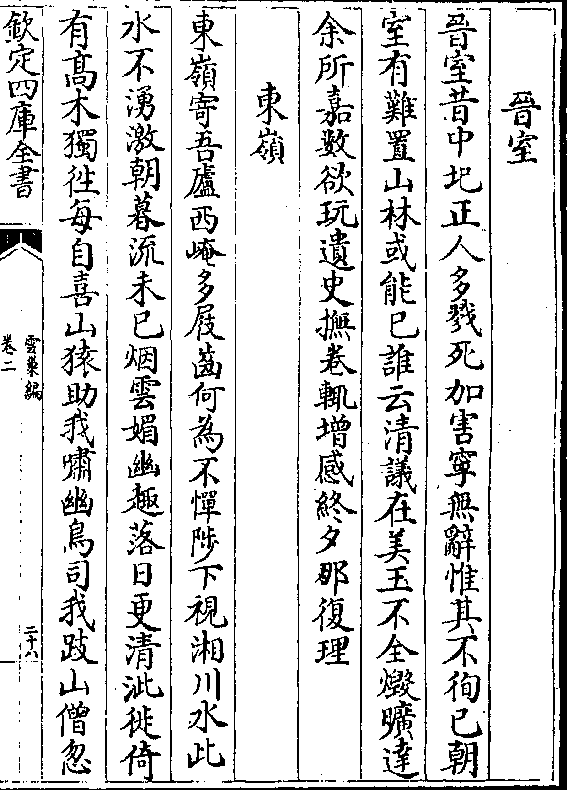 晉室
晉室昔中圮正人多戮死加害寧無辭惟其不徇已朝
室有難置山林或能已誰云清議在美玉不全燬曠達
余所嘉数欲玩遺史撫卷輒增感終夕那復理
東嶺
東嶺寄吾廬西崦多屐齒何為不憚陟下視湘川水此
水不湧激朝暮流未已烟雲媚幽趣落日更清泚徙倚
有髙木獨徃每自喜山猿助我嘯幽鳥司我跂山僧忽
欽定四庫全書
雲巢編
卷二
二十六